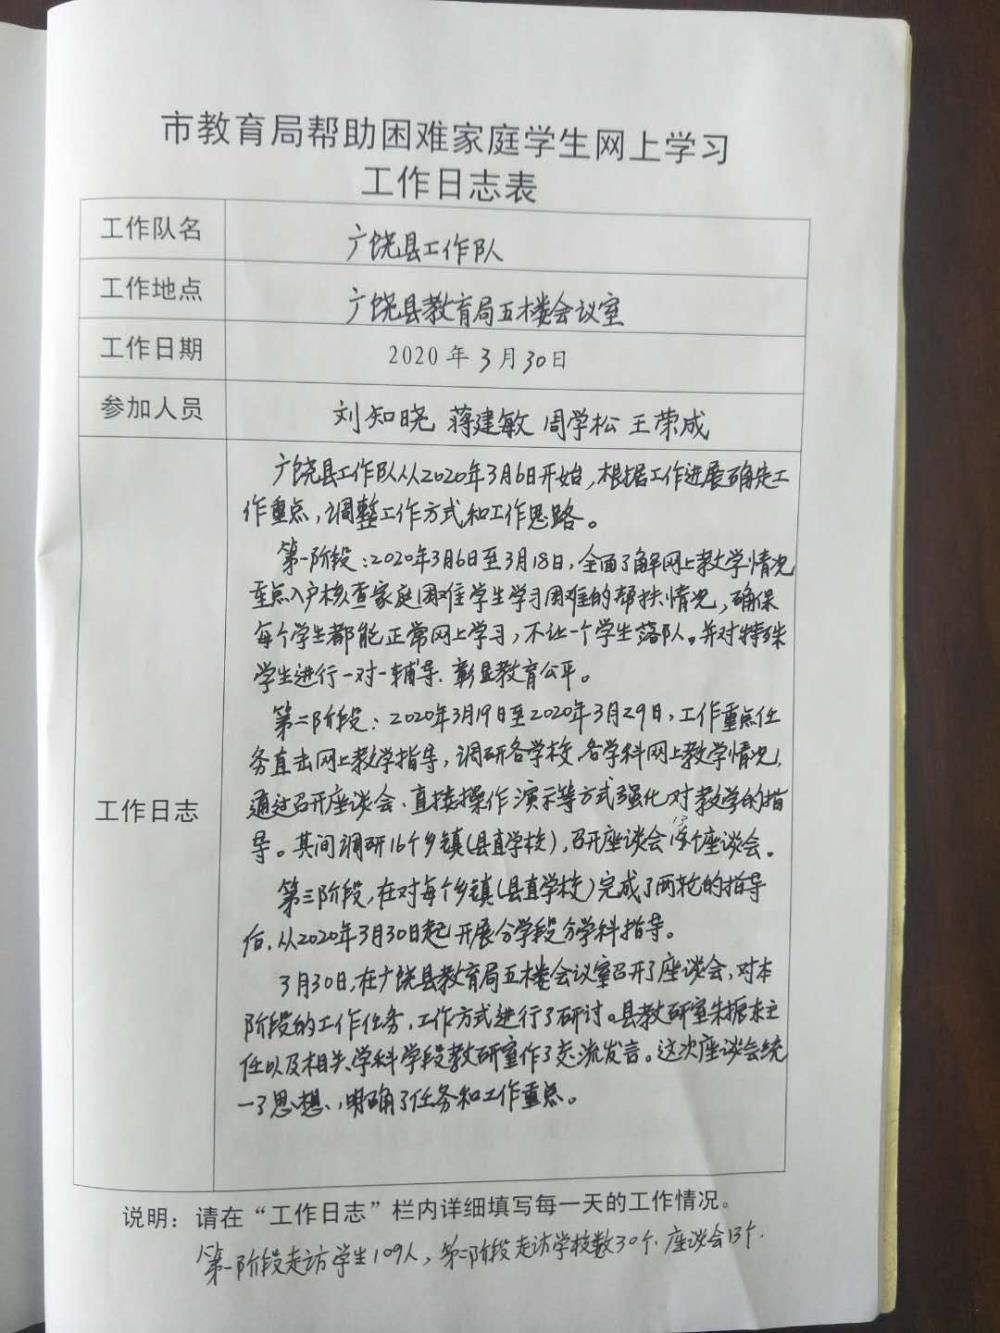 市教育局帮助困难家庭学生网上学习
工作日志表
工作队名 广饶县工作队
工作地点 广饶县教育局五楼会议室
工作日期 2020年3月30日
参加人员 刘知晓 蒋建敏 周学松 王荣成
工作日志
广饶县工作队从2020年3月6日开始，根据工作进展确定工
作重点，调整工作方式和工作思路。
第一阶段：2020年3月6日至3月18日，全面了解网上教学情况
重点入户核查家庭困难学生学习困难的帮扶情况，确保
每个学生都能正常网上学习，不让一个学生落队。并对特殊
学生进行一对一辅导、彰显教育公平。
第二阶段：2020年3月19日至2020年3月29日，工作重点任
务直击网上教学指导，调研各学校、各学科网上教学情况，
通过召开座谈会、直接操作演示等方式强化对教学的指
导。其间调研16个乡镇（县直学校），召开座谈会13个座谈会。
第三阶段，在对每个乡镇（县直学校）完成了两轮的指导
后，从2020年3月30日起开展分学段分学科指导。
3月30日，在广饶县教育局五楼会议室召开了座谈会，对本
阶段的工作任务，工作方式进行了研讨。县教研室朱振主
任以及相关学科学段教研室作了交流发言。这次座谈会统
一了思想，明确了任务和工作重点。
说明：请在“工作日志”栏内详细填写每一天的工作情况。
第一阶段走访学生109人，第二阶段走访学校数30个、座谈会13个.